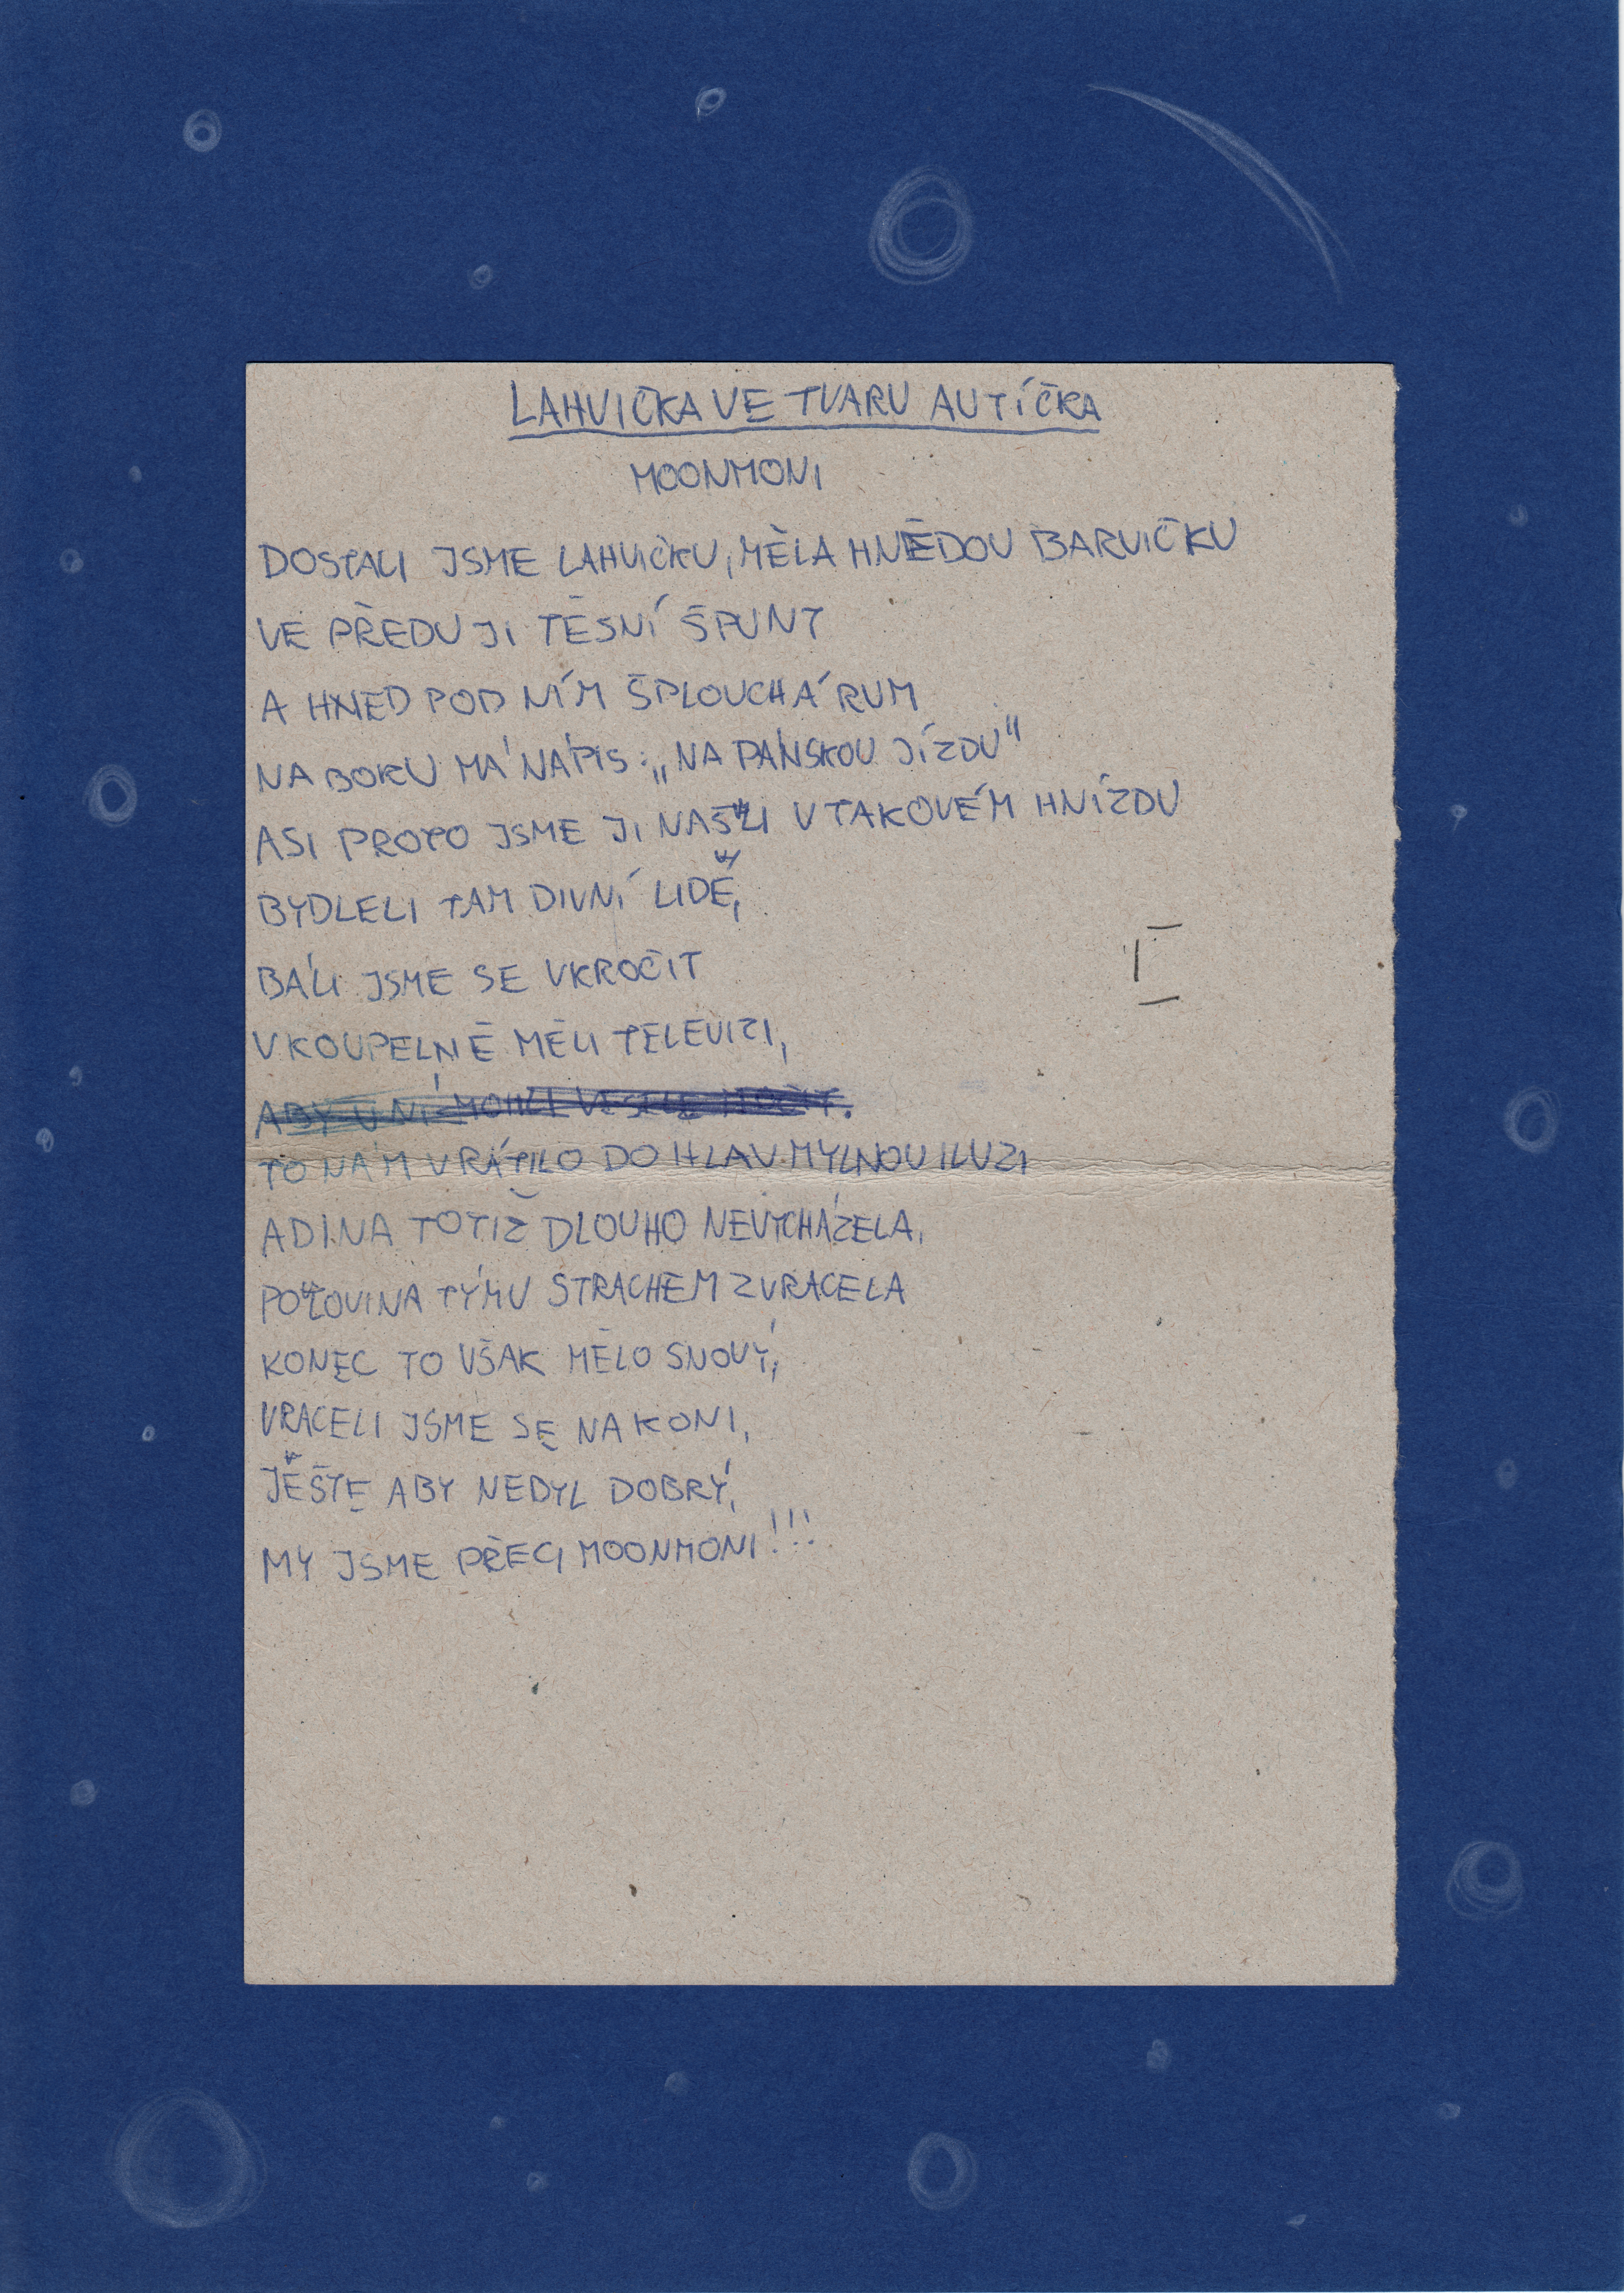 LAHVIČKA VE TVARU AUTÍČKA
MOONMONI
DOSTALI JSME LAHVIČKU, MĚLA HNĚDOU BARVIČKU
VE PŘEDU JI TĚSNÍ ŠPUNT
A HNED POD NÍM ŠPLOUCHÁ RUM
NA BOKU MÁ NÁPIS: „NA PÁNSKOU JÍZDU"
ASI PROTO JSME JI NAŠLI V TAKOVÉM HNÍZDU
BYDLELI TAM DIVNÍ LIDÉ,
BÁLI JSME SE VKROČIT
V KOUPELNĚ MĚLI TELEVIZI,
ABY U NÍ MOHLI VESELE MOČIT.
TO NÁM VRÁTILO DO HLAV MYLNOU ILUZI
ADINA TOTIŽ DLOUHO NEVYCHÁZELA,
POLOVINA TÝMU STRACHEM ZVRACELA
KONEC TO VŠAK MĚLO SNOVÝ,
VRACELI JSME SE NA KONI,
JEŠTE ABY NEBYL DOBRÝ,
MY JSME PŘECI MOONMONI!!!